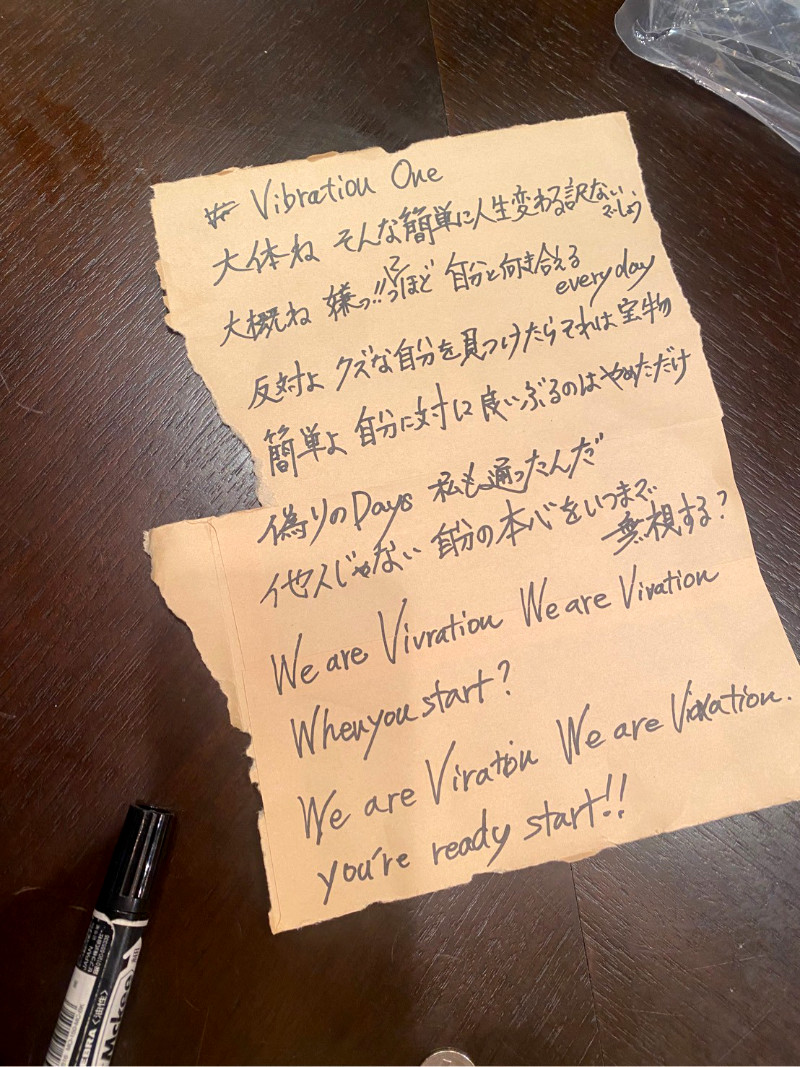 # Vibration One
大体ね そんな簡単に人生変わる訳ない、でしょ
大概ね 嫌っ!!つほど 自分と向き合える
every day
反対よ クズな自分を見つけたらそれは宝物
簡単よ 自分に対に良いぶるのはやめただけ
偽りのDays 私も通ったんだ
他人じゃない 自分の本心をいつまで
無視する?
We are Vivration We are Vivation
When you start?
We are Viration We are Vi ation.
you're ready start!!
ZEBRA